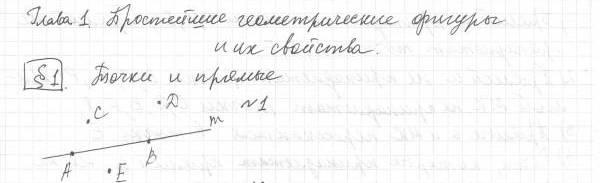 Глава 1 Простейшие геометрические фигуры
и их свойства.
§1. Точки и прямые
C D №1
m
A B
E